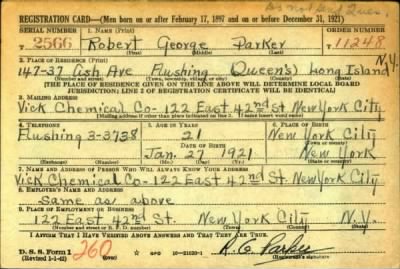 Do not send Ques.
REGISTRATION CARD—(Men born on or after February 17, 1897 and on or before December 31, 1921)
SERIAL NUMBER 1. NAME (Print) ORDER NUMBER
T 2566 Robert George Parker 11248
(First) (Middle) (Last)
2. PLACE OF RESIDENCE (Print) N.Y.
147-37 Ash Ave Flushing Queens Long Island
(Number and street) (Town, township, village, or city) (County) (State)
[THE PLACE OF RESIDENCE GIVEN ON THE LINE ABOVE WILL DETERMINE LOCAL BOARD
JURISDICTION; LINE 2 OF REGISTRATION CERTIFICATE WILL BE IDENTICAL]
3. MAILING ADDRESS
Vick Chemical Co-122 East 42nd St New York City
[Mailing address if other than place indicated on line 2. If same insert word same]
4. TELEPHONE 5. AGE IN YEARS 6. PLACE OF BIRTH
Flushing 3-3738 21 New York City
DATE OF BIRTH (Town or county)
Jan. 27 1921 New York
(Exchange) (Number) (Mo.) (Day) (Yr.) (State or country)
7. NAME AND ADDRESS OF PERSON WHO WILL ALWAYS KNOW YOUR ADDRESS
Vick Chemical Co-122 East 42nd St. New York City
8. EMPLOYER'S NAME AND ADDRESS
Same as above
9. PLACE OF EMPLOYMENT OR BUSINESS
122 East 42nd St. New York City N.Y.
(Number and street or R. F. D. number) (Town) (County) (State)
I AFFIRM THAT I HAVE VERIFIED ABOVE ANSWERS AND THAT THEY ARE TRUE.
D. S. S. Form 1
(Revised 1-1-42) 260 GPO 16-21630-1 R. G. Parker
(Registrant's signature)